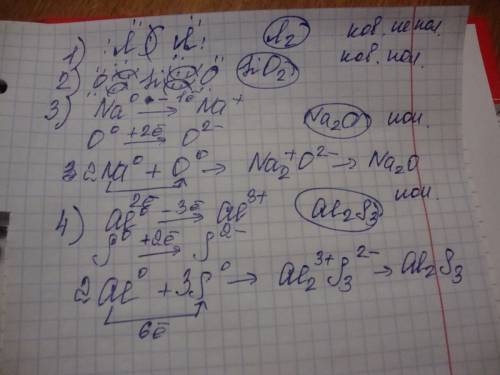 1) :I I: I2 ков. непол.
2) O Si O SiO2 ков. пол.
3) Na⁰ –1ē → Na⁺ Na2O ион.
O⁰ +2ē → O²⁻
2Na⁰ + O⁰ → Na2⁺O²⁻ → Na2O
2ē ион.
4) Al⁰ –3ē → Al³⁺ Al2S3
S⁰ +2ē → S²⁻
2Al⁰ + 3S⁰ → Al2³⁺S3²⁻ → Al2S3
6ē